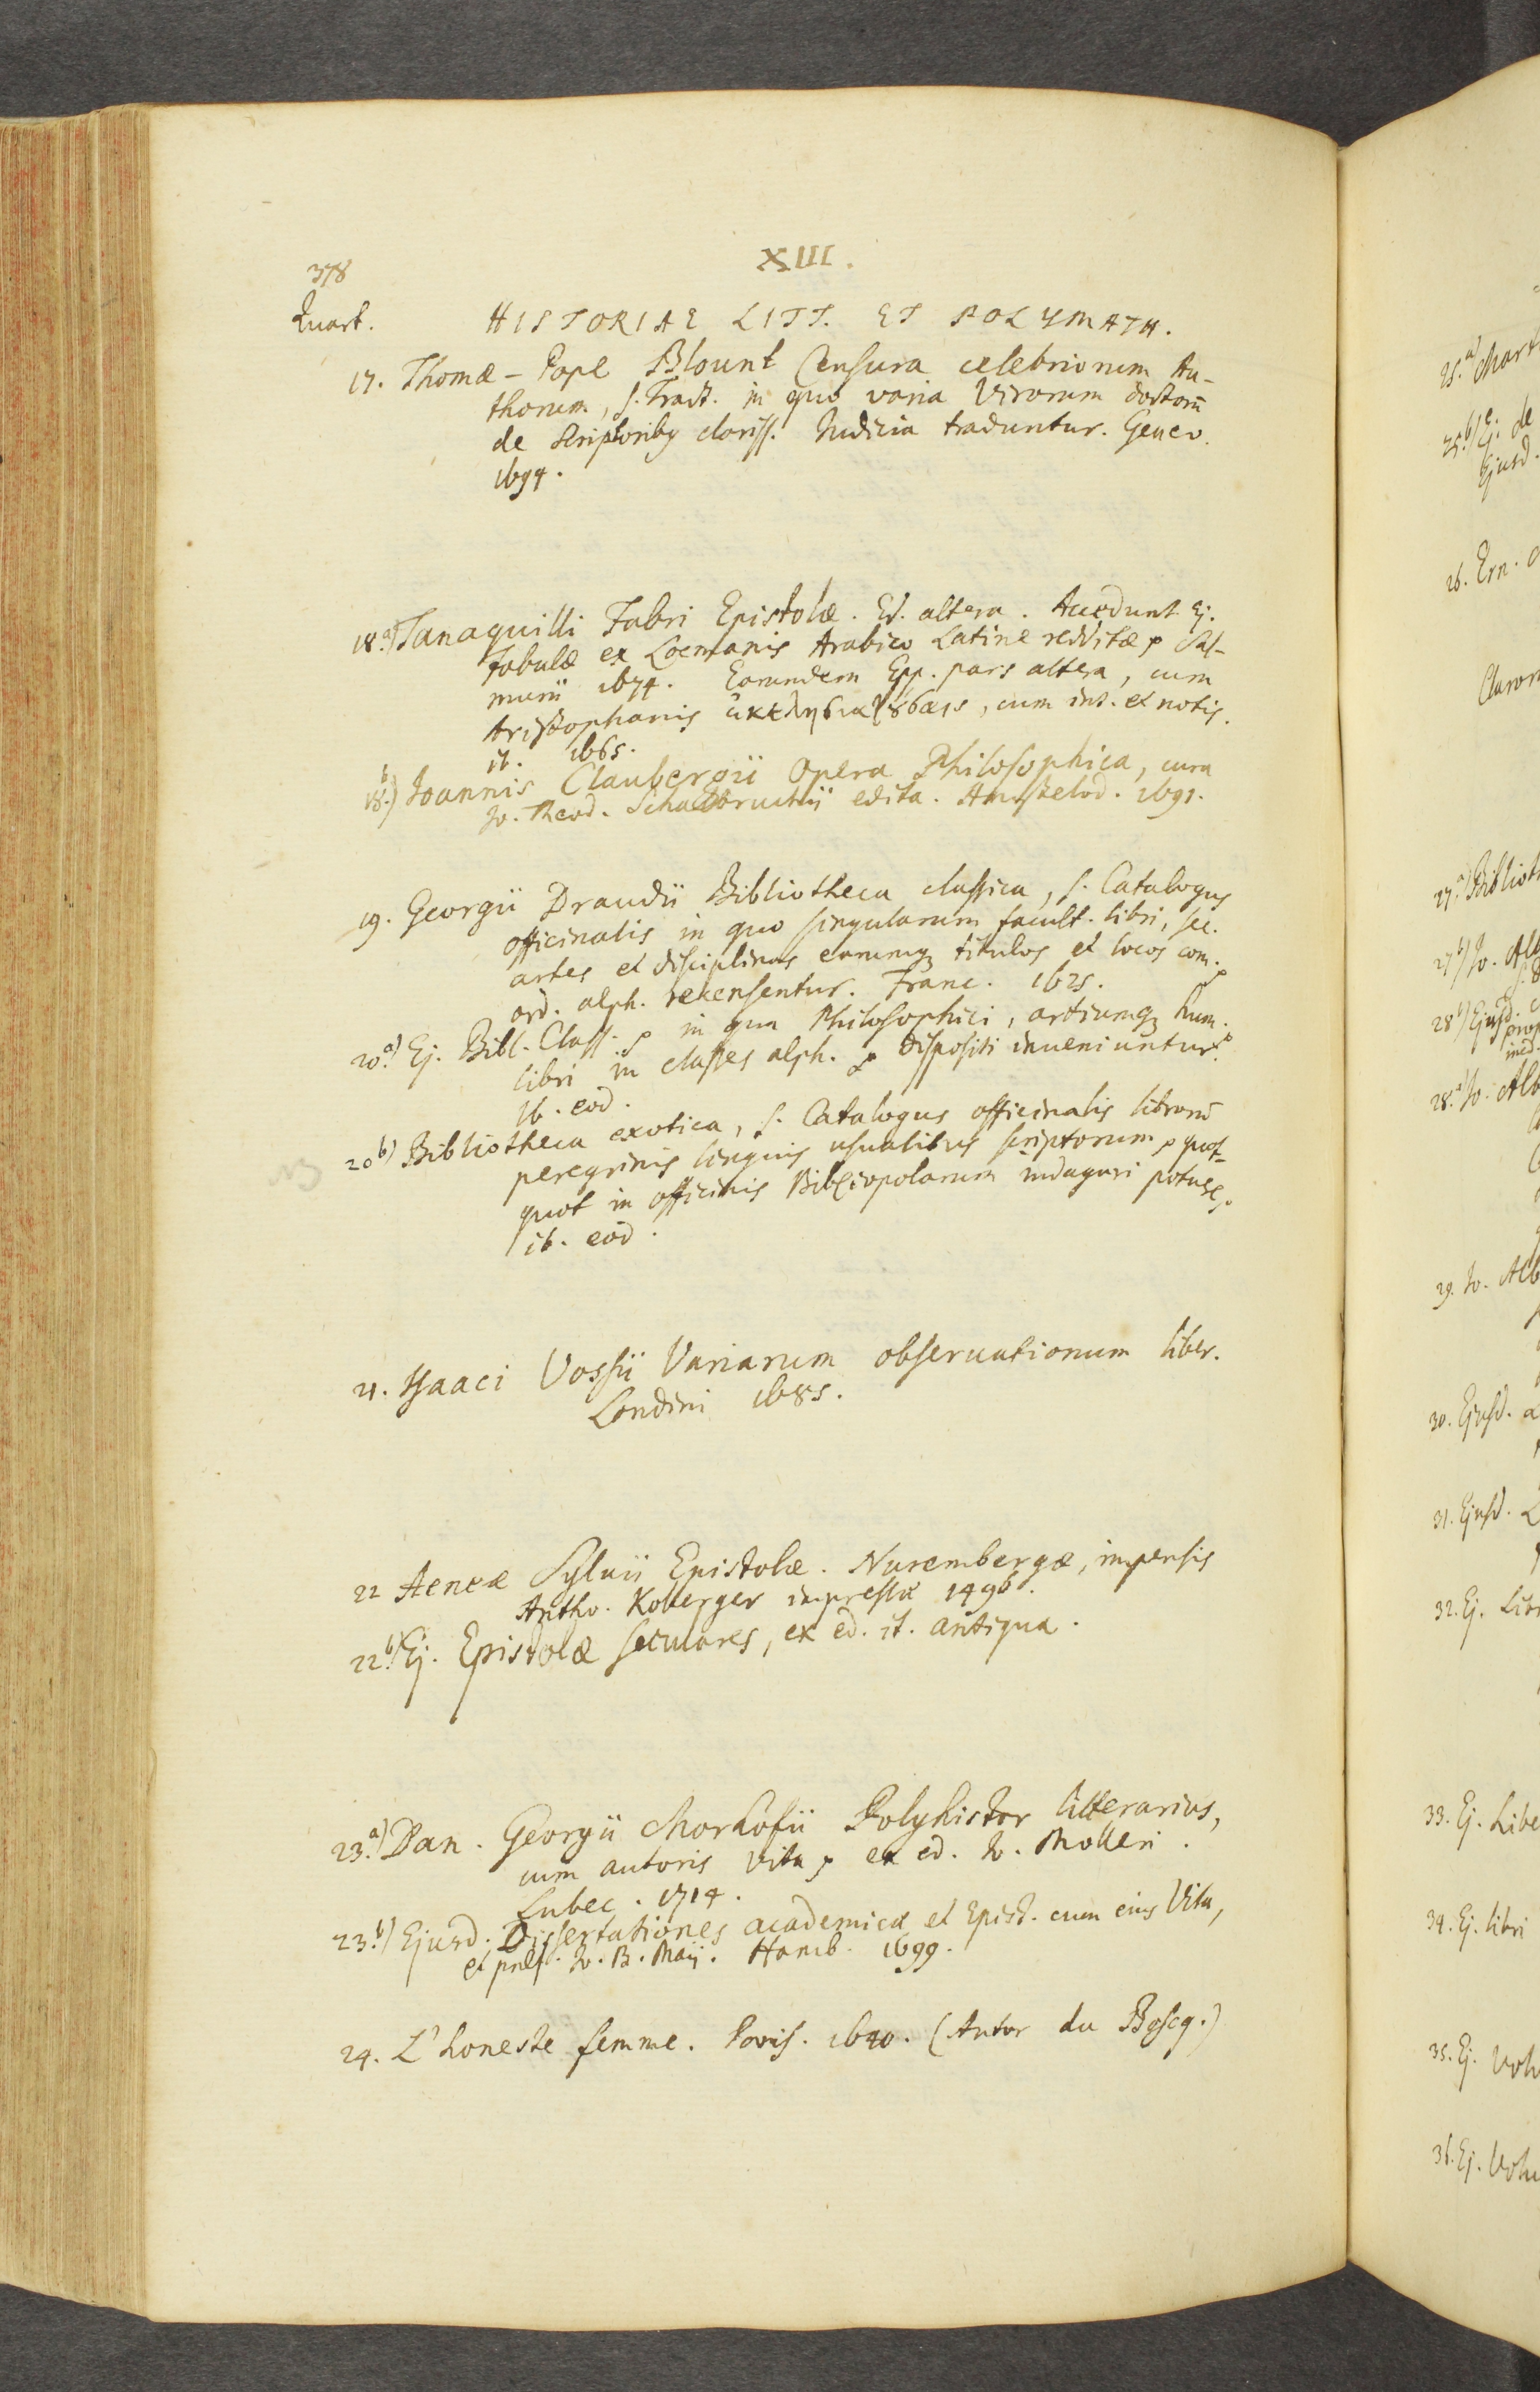 XIII.
378
Quart.
HISTORIAE LITT. ET POLYMATH.
17. Thomæ-Pope Blount Censura celebriorum Au-
thorum, s. Tract. in quo varia Virorum doctorū
de Scriptoribꝯ clariss. Iudicia traduntur. Genev.
1694.
18.a) Tanaquilli Fabri Epistolæ. Ed. altera. Accedunt Ej.
Fabulæ ex Locmanis Arabico Latine redditæ Sal-
murii 1674. Earundem Epp. pars altera, cum
Aristophanis ἐκκλησιαζούσαις, cum int. et notis.
ib. 1665.
18.b) Joannis Claubergii Opera Philosophica, cura
Jo. Theod. Schalbruchii edita. Amstelod. 1691.
19. Georgii Draudii Bibliotheca classica, s. Catalogus
officinalis in quo singularum facult. libri, sec.
artes et disciplinas earumq; titulos et locos com.
ord. alph. recensentur. Franc. 1625.
20.a) Ej. Bibl. Class. in qua Philosophici, artiumq; hum.
libri in classes alph. dispositi inueniuntur.
ib. eod.
20b) Bibliotheca exotica, s. Catalogus officinalis librorū
peregrinis linguis usualibus scriptorum quot-
quot in officinis Bibliopolarum indagari potuer.
ib. eod.
NB
21. Isaaci Vossii Variarum obseruationum liber.
Londini 1685.
22 Aeneæ Syluii Epistolæ. Nurembergæ, impensis
Antho. Koberger impressæ 1496.
22.b) Ej. Epistolæ seculares, ex ed. it. antiqua.
23.a) Dan. Georgii Morhofii Polyhistor litterarius,
cum autoris Vita ex ed. Jo. Molleri.
Lubec. 1714.
23.b) Ejusd. Dissertationes academicæ et Epist. cum eius Vita,
et præf. Jo. B. Maii. Hamb. 1699.
24. L'honeste femme. Paris. 1640. (Autor du Boscq.)
25.a) Mart
25.b) Ej. de
Ejusd.
26. Ern.
27.a) Biblioth
27.b) Jo. Alb
28b) Ejusd.
28.a) Jo. Alb
29. Jo. Alb
30. Ejusd.
31. Ejusd.
32. Ej. Lib
33. Ej. Libe
34. Ej. libri
35. Ej. Volu
36. Ej. Volu